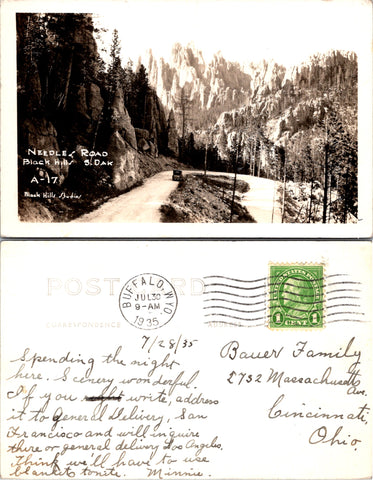 NEEDLES ROAD
Black Hills S. DAK
A-17
Black Hills Studios
POST CARD
CORRESPONDENCE
ADDRESS
BUFFALO, WYO.
JUL 30
9-AM
1935
UNITED STATES POSTAGE
1 CENT 1
7/28/35
Spending the night
here. Scenery wonderful.
If you write, address
it to General Delivery, San
Francisco and will inquire
there or general delivery Los Angeles.
Think we'll have to use
blankets tonite. Minnie.
Bauer Family
2732 Massachusetts
Ave.
Cincinnati,
Ohio.